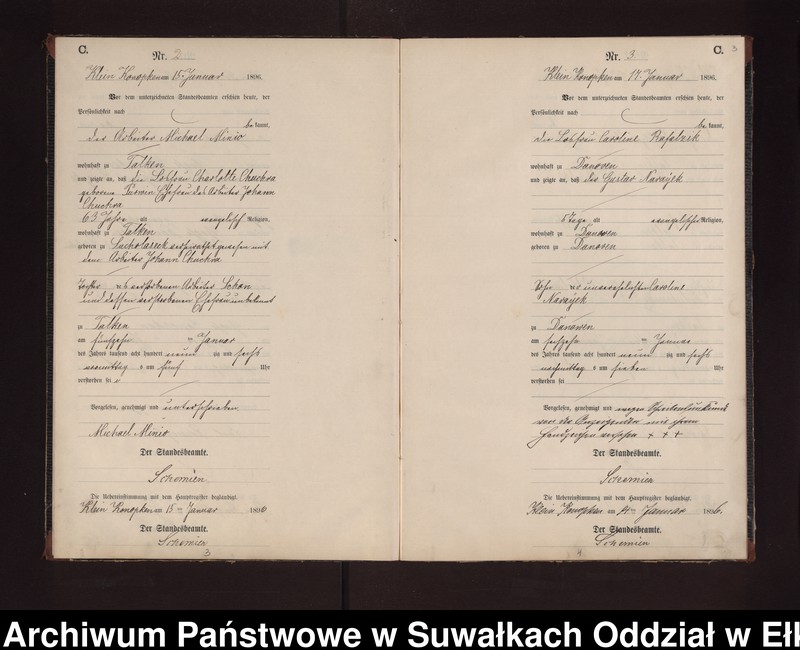 C.
Nr. 2
Klein Konopken am 15 Januar 1896.
Vor dem unterzeichneten Standesbeamten erschien heute, der
Persönlichkeit nach
be kannt,
der Arbeiter Michael Minio
wohnhaft zu Talken
und zeigte an, daß die Losfrau Charlotte Chuchra
geborene Ehefrau des Arbeiter Johann
Chuchra
63 Jahre alt evangelischer Religion,
wohnhaft zu Talken
geboren zu verheirathet gewesen mit
dem Arbeiter Johann Chuchra
Tochter des verstorbenen Arbeiter
und dessen verstorbenen Ehefrau unbekannt
zu Talken
am fünfzehn ten Januar
des Jahres tausend acht hundert neun zig und sechs
vormittag s um fünf Uhr
verstorben sei
Vorgelesen, genehmigt und unterschrieben
Michael Minio
Der Standesbeamte.
Schemien
Die Uebereinstimmung mit dem Hauptregister beglaubigt.
Klein Konopken am 15 ten Januar 1896
Der Standesbeamte.
Schemien
3
C.
3
Nr. 3
Klein Konopken am 17 Januar 1896.
Vor dem unterzeichneten Standesbeamten erschien heute, der
Persönlichkeit nach
be kannt,
die Losfrau Caroline Rafalzik
wohnhaft zu Danowen
und zeigte an, daß der Gustav Narajek
8 Tage alt evangelischer Religion,
wohnhaft zu Danowen
geboren zu Danowen
Sohn der unverehelichten Caroline
Narajek
zu Danowen
am sechzehn ten Januar
des Jahres tausend acht hundert neun zig und sechs
nachmittag s um sieben Uhr
verstorben sei
Vorgelesen, genehmigt und wegen
von der Anzeigenden mit ihrem
Handzeichen versehen + + +
Der Standesbeamte.
Schemien
Die Uebereinstimmung mit dem Hauptregister beglaubigt.
Klein Konopken am ten Januar 1896.
Der Standesbeamte.
Schemien
4
Archiwum Państwowe w Suwałkach Oddział w Ełk